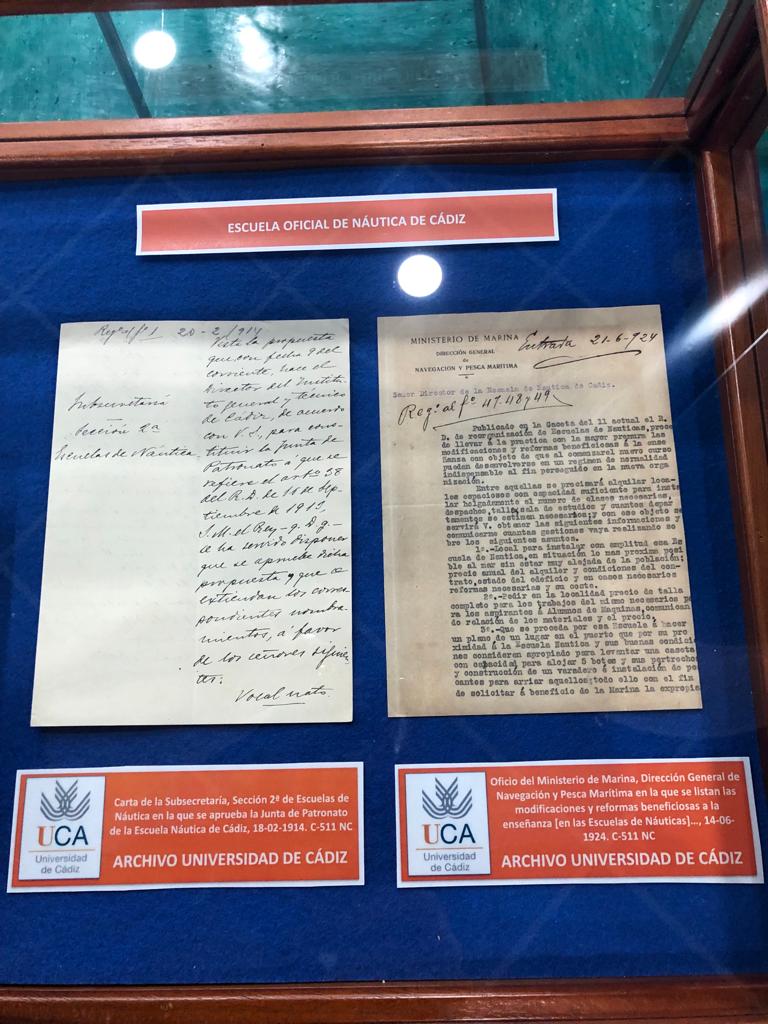 ESCUELA OFICIAL DE NÁUTICA DE CÁDIZ
20-2/914
Vista la propuesta
que con fecha 9 del
corriente, hace el
Director del Institu-
to general y técnico
de Cádiz, de acuerdo
con V. S., para cons-
tituir la Junta de
Patronato á que se
refiere el artº 58
del R. D. de 16 de Sep-
tiembre de 1913,
S. M. el Rey - q. D. g. -
se ha servido disponer
que se apruebe dicha
propuesta y que se
extiendan los corres-
pondientes nombra-
mientos, á favor
de los señores siguien-
tes:
Vocal nato
Subsecretaría
Sección 2ª
Escuelas de Náutica
MINISTERIO DE MARINA
DIRECCIÓN GENERAL
DE
NAVEGACIÓN Y PESCA MARÍTIMA
Entrada 21-6-924
Señor Director de la Escuela de Nautica de Cadiz.
Regº al fº 47.48 y 49
Publicado en la Gaceta del 11 actual el R.
D. de reorganización de Escuelas de Nauticas, proce
de llevar á la practica con la mayor premura las
modificaciones y reformas beneficiosas á la ense
ñanza con objeto de que al comenzarel nuevo curso
puedan desenvolverse en un regimen de normalidad
indispensable al fin perseguido en la nueva orga
nización.
Entre aquellas se precisará alquilar loca-
les espaciosos con capacidad suficiente para inst
lar holgadamente el numero de clases necesarias,
despachos, taller, sala de estudios y cuantos depar
tamentos se estimen necesarios; y con ese objeto se
servirá V. obtener las siguientes informaciones y
comunicarme cuantas gestiones vaya realizando so
bre los siguientes asuntos.
1º.-Local para instalar con amplitud esa Es
cuela de Nautica, en situación lo mas proxima posi
ble al mar sin estar muy alejada de la población;
precio anual del alquiler y condiciones del con-
trato, estado del edeficio y en casos necesarios
reformas necesarias y su coste.
2º.-Pedir en la localidad precio de talle
completo para los trabajos del mismo necesarios p
ra los aspirantes á Alumnos de Maquinas, comunican
do relación de los materiales y el precio.
3º.-Que se proceda por esa Escuela á hacer
un plano de un lugar en el puerto que por su pro
ximidad á la Escuela Nautica y sus buenas condicio
nes consideran apropiado para levantar una caseta
con capacidad para alojar 5 botes y sus pertrechos
y construcción de un varadero é instalación de pe
cantes para arriar aquellos; todo ello con el fin
de solicitar á beneficio de la Marina la expropia
UCA
Universidad
de Cádiz
Carta de la Subsecretaría, Sección 2ª de Escuelas de
Náutica en la que se aprueba la Junta de Patronato
de la Escuela Náutica de Cádiz, 18-02-1914. C-511 NC
ARCHIVO UNIVERSIDAD DE CÁDIZ
UCA
Universidad
de Cádiz
Oficio del Ministerio de Marina, Dirección General de
Navegación y Pesca Marítima en la que se listan las
modificaciones y reformas beneficiosas a la
enseñanza [en las Escuelas de Náuticas]..., 14-06-
1924. C-511 NC
ARCHIVO UNIVERSIDAD DE CÁDIZ